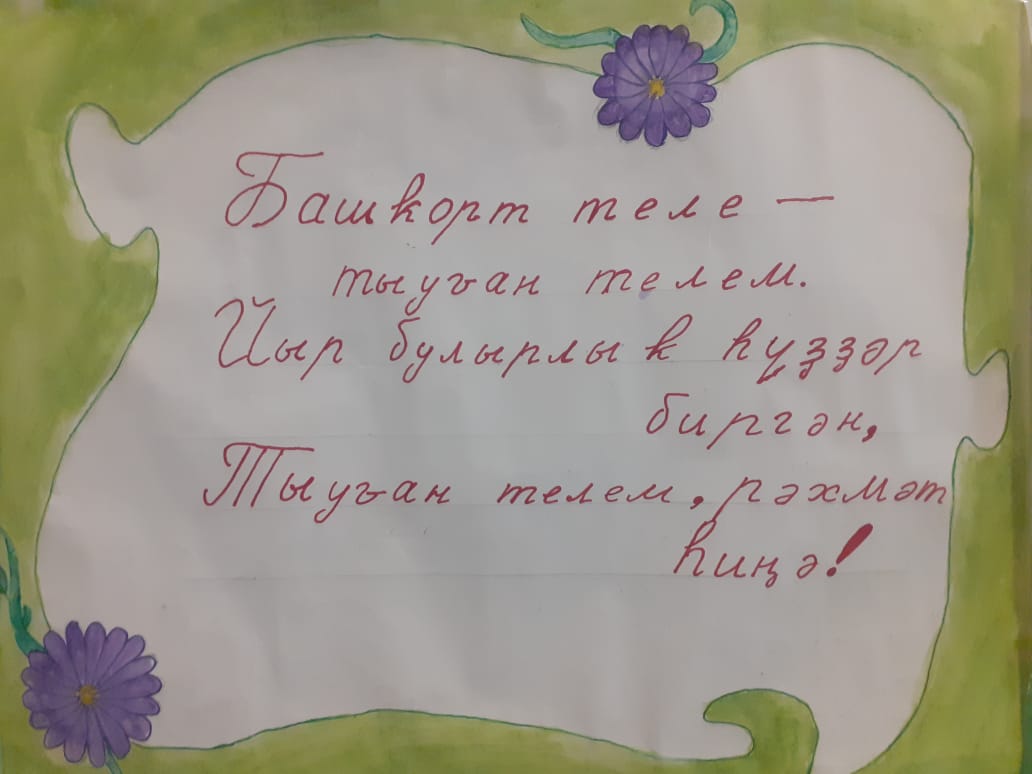 Башҡорт теле —
тыуған телем.
Йыр булырлыҡ һүҙҙәр
биргән,
Тыуған телем, рәхмәт
һиңә!